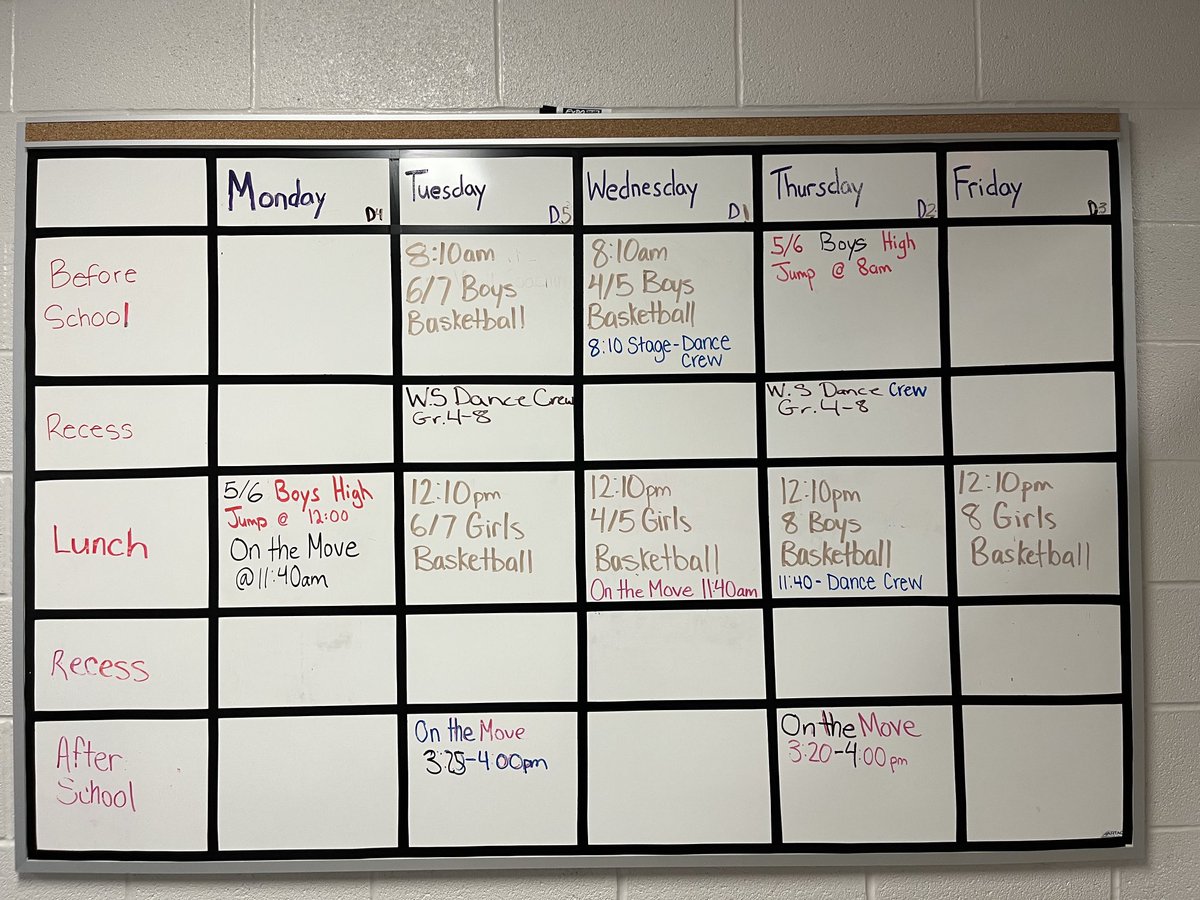 Monday D4
Tuesday D5
Wednesday D1
Thursday D2
Friday D3
Before
School
8:10am
6/7 Boys
Basketball
8:10am
4/5 Boys
Basketball
8:10 Stage-Dance
Crew
5/6 Boys High
Jump @ 8am
Recess
W.S Dance Crew
Gr.4-8
W.S Dance Crew
Gr.4-8
Lunch
5/6 Boys High
Jump @ 12:00
On the Move
@11:40am
12:10pm
6/7 Girls
Basketball
12:10pm
4/5 Girls
Basketball
On the Move 11:40am
12:10pm
8 Boys
Basketball
11:40- Dance Crew
12:10pm
8 Girls
Basketball
Recess
After
School
On the Move
3:25-4:00pm
On the Move
3:20-4:00pm